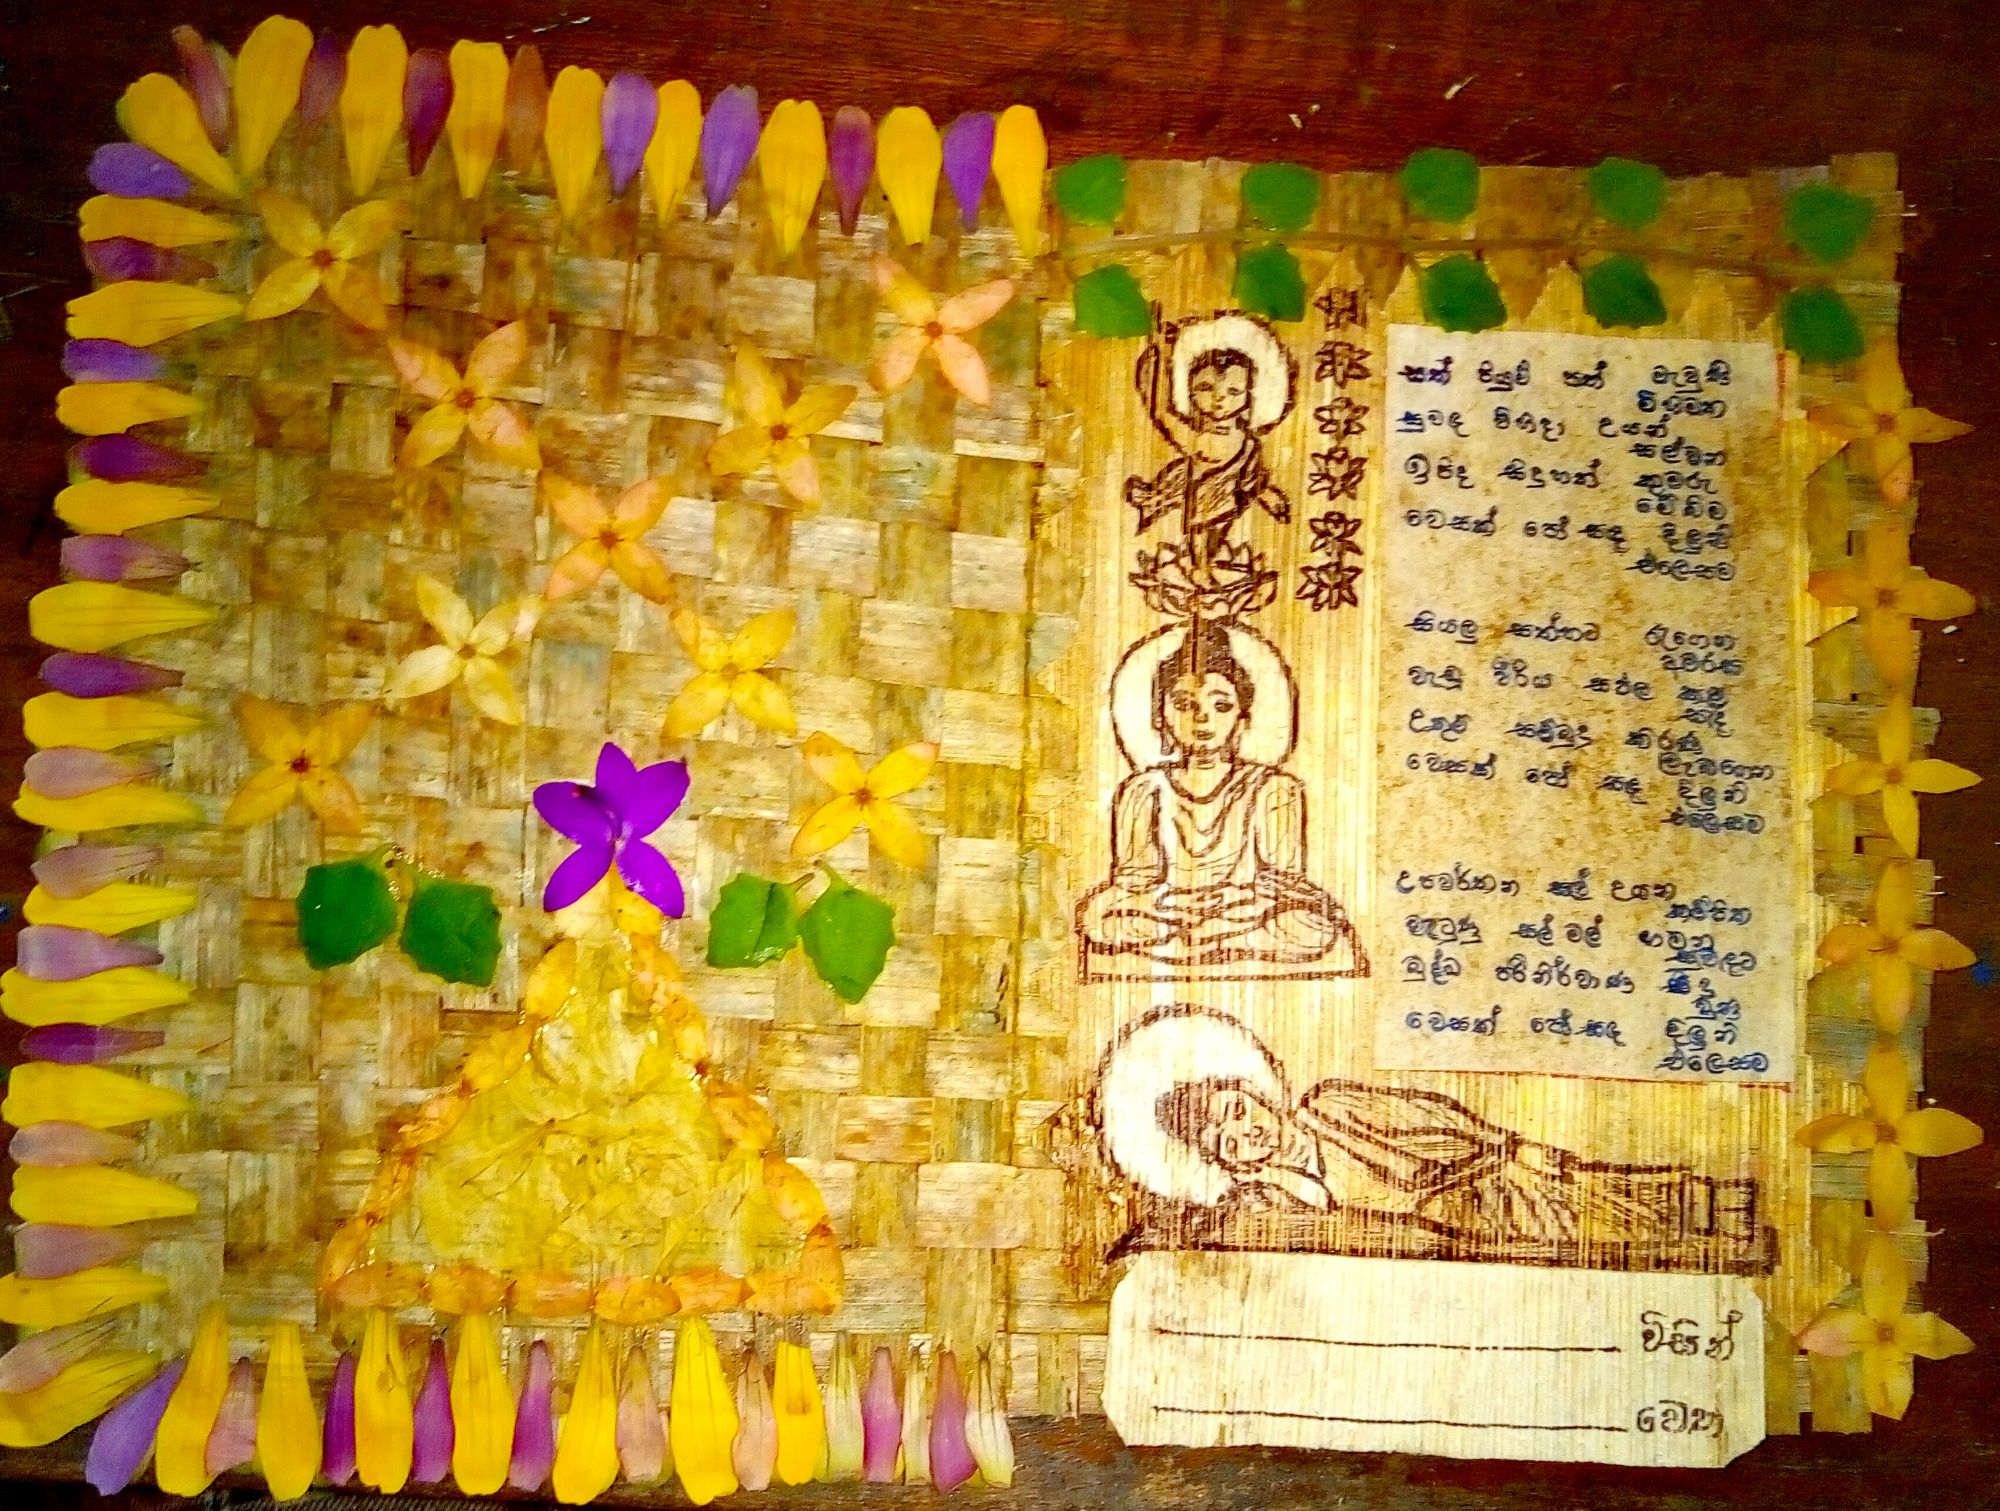 සත් පියුම් පත් මැවුණි
විගිමන
සුවඳ විහිදා උයන්
සල්වන
ඉපිද සිදුහත් කුමරු
මෙබිම
වෙසක් පෝ සඳ දිලුනි
එලෙසට
සියලු සත්හට රැගෙන
අවරණ
වැඩූ වීරිය සඵල කළ
සඳ
උතුම් සම්බුදු කිරණ
ලැබගෙන
වෙසක් පෝ සඳ දිලුනි
එලෙසට
උපවර්තන සල් උයන
කම්පිත
වැටුණු සල් මල්
බුද්ධ පරිනිර්වාණ
වුනි
වෙසක් පෝ සඳ දිලුනි
එලෙසට
විසින්
වෙත